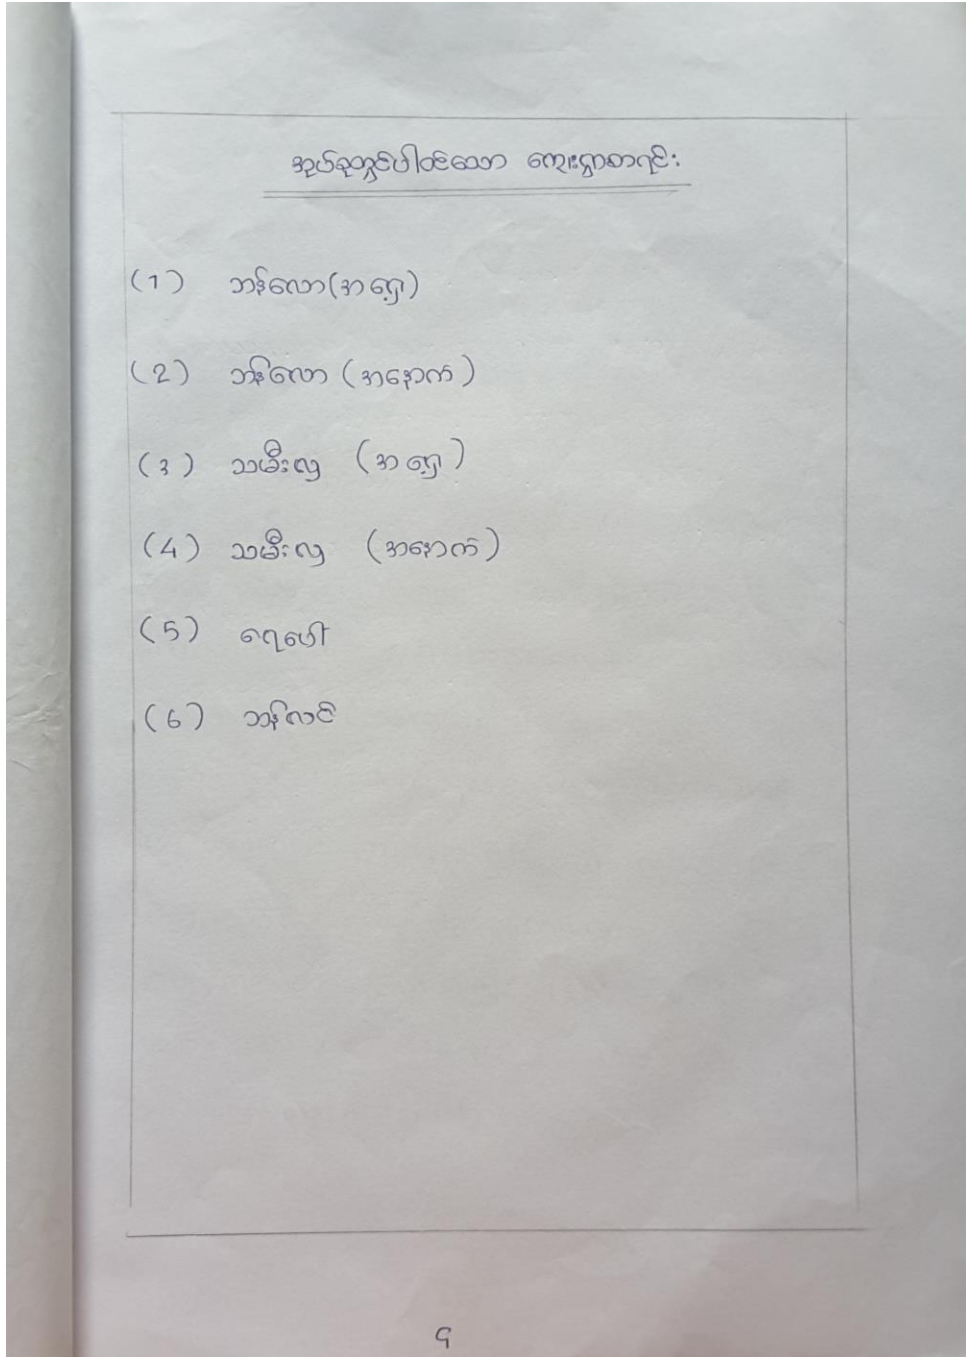 အုပ်စုတွင်ပါဝင်သော ကျေးရွာစာရင်း
(1) ဘန်လော(အရှေ့)
(2) ဘန်လော (အနောက်)
(3) သမီးလှ (အရှေ့)
(4) သမီးလှ (အနောက်)
(5) ရေပေါ်
(6) ဘန်လင်
၄